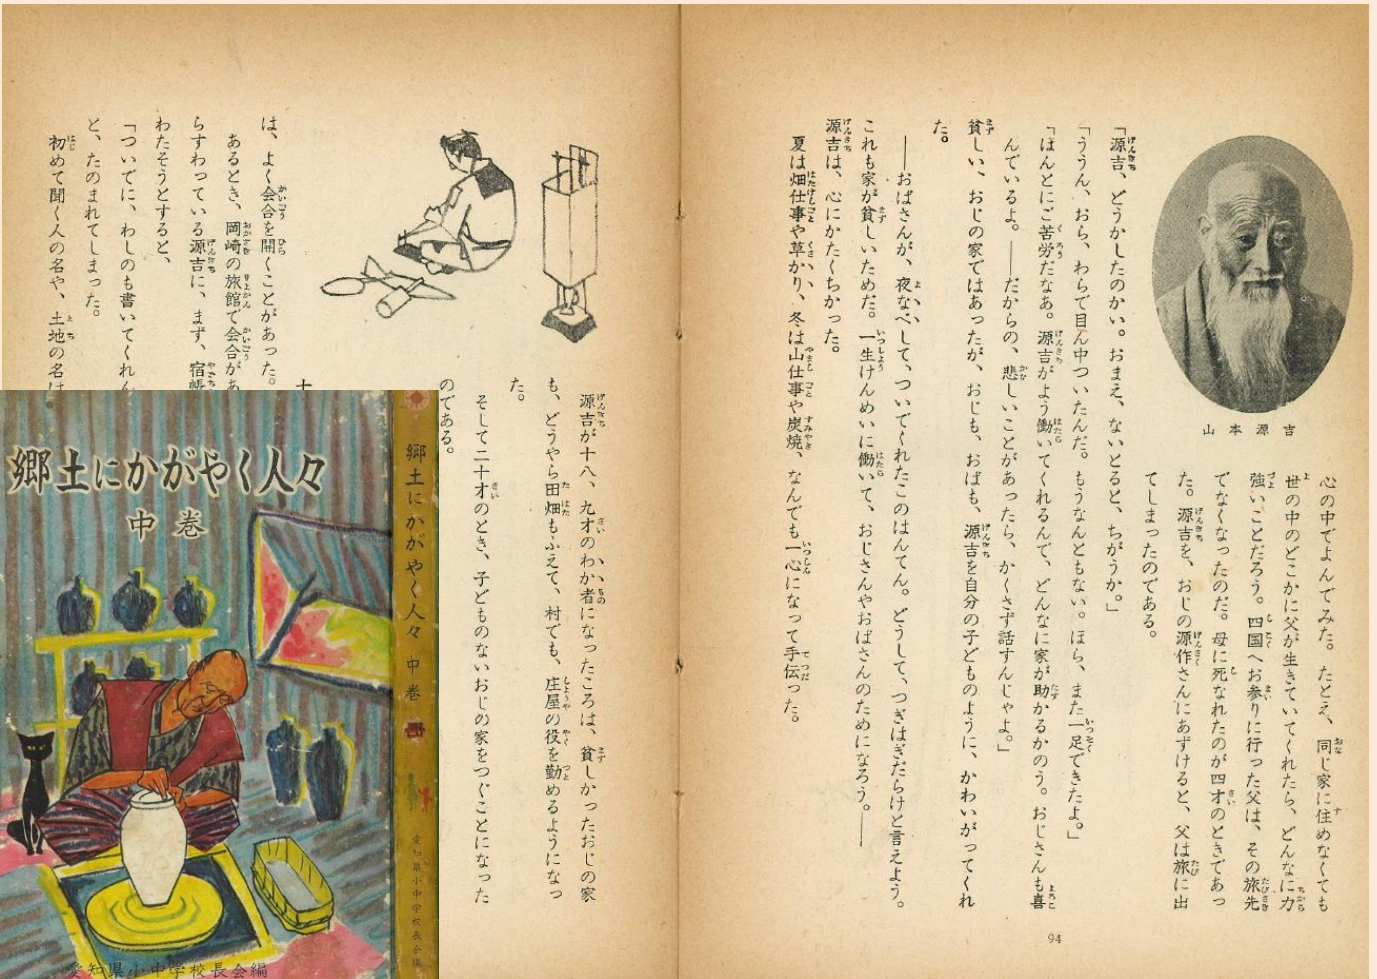 山本源吉
心の中でよんでみた。たとえ、同じ家に住めなくても
世の中のどこかに父が生きていてくれたら、どんなに力
強いことだろう。四国へお参りに行った父は、その旅先
でなくなったのだ。母に死なれたのが四才のときであっ
た。源吉を、おじの源作さんにあずけると、父は旅に出
てしまったのである。
「源吉、どうかしたのかい。おまえ、ないとると、ちがうか。」
「ううん、おら、わらで目ん中ついたんだ。もうなんともない。ほら、また一足できたよ。」
「ほんとにご苦労だなあ。源吉がよう働いてくれるんで、どんなに家が助かるかのう。おじさんも喜
んでいるよ。――だからの、悲しいことがあったら、かくさず話すんじゃよ。」
貧しい、おじの家ではあったが、おじも、おばも、源吉を自分の子どものように、かわいがってくれ
た。
――おばさんが、夜なべして、ついでくれたこのはんてん。どうして、つぎはぎだらけと言えよう。
これも家が貧しいためだ。一生けんめいに働いて、おじさんやおばさんのためになろう。――
源吉は、心にかたくちかった。
夏は畑仕事や草かり、冬は山仕事や炭焼、なんでも一心になって手伝った。
94
源吉が十八、九才のわか者になったころは、貧しかったおじの家
も、どうやら田畑もふえて、村でも、庄屋の役を勤めるようになっ
た。
そして二十才のとき、子どものないおじの家をつぐことになった
のである。
十
は、よく会合を開くことがあった。
あるとき、岡崎の旅館で会合があ
らすわっている源吉に、まず、宿帳
わたそうとすると、
「ついでに、わしのも書いてくれん
と、たのまれてしまった。
初めて聞く人の名や、土地の名は
郷土にかがやく人々
中巻
愛知県小中学校長会編
郷土にかがやく人々 中巻
愛知県小中学校長会編